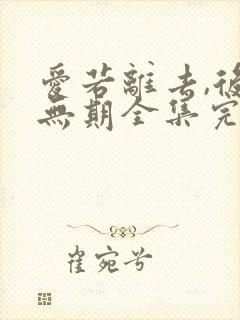 愛若離去,後
無期全集完
崔宛兮